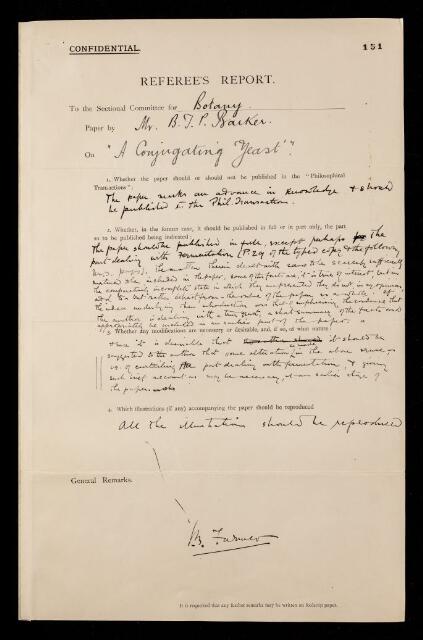 CONFIDENTIAL.
151
REFEREE'S REPORT.
To the Sectional Committee for Botany.
Paper by Mr. B. T. P. Barker.
On "A Conjugating Yeast".
1. Whether the paper should or should not be published in the "Philosophical
Transactions":
The paper marks an advance in knowledge & should
be published in the Phil. Transactions.
2. Whether, in the former case, it should be published in full or in part only, the part
so to be published being indicated:
The paper should be published in full, except perhaps for the
part dealing with Fermentation (P. 29 of the typed copy & the following
pages). The matter therein dealt with seems to be scarcely sufficiently
matured to be included in the paper, some of the facts are, it is true, of interest, but in
the comparatively incomplete state in which they are presented they do not, in my opinion,
add to but rather detract from the value of the paper as a whole.
the author is dealing with a true yeast, a short summary of the facts
appropriately be included in an earlier part of the paper.
3. Whether any modifications are necessary or desirable, and, if so, of what nature:
it is desirable that it should be
suggested to the author that some alteration in the above sense
of curtailing the part dealing with fermentation, & giving
such brief account as may be necessary, at an earlier stage of
the paper
4. Which illustrations (if any) accompanying the paper should be reproduced
All the illustrations should be reproduced
General Remarks.
Farmer
It is requested that any further remarks may be written on foolscap paper.